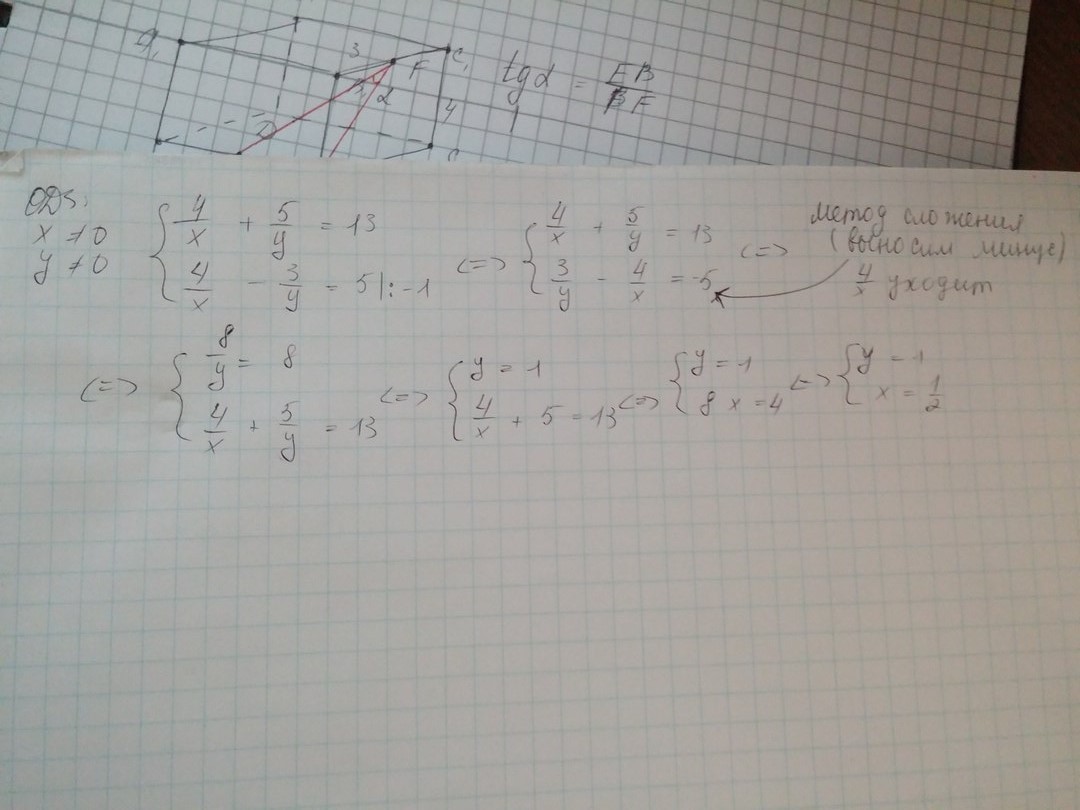 3 F C₁
tgα = EB / BF
4
α
ODS:
x ≠ 0
y ≠ 0
{ 4/x + 5/y = 13
{ 4/x - 3/y = 5 |: -1
<=> { 4/x + 5/y = 13
{ 3/y - 4/x = -5
<=>
метод сложения
(выносим минус)
4/x уходит
<=> { 8/y = 8
{ 4/x + 5/y = 13
<=> { y = 1
{ 4/x + 5 = 13
<=> { y = 1
{ 8x = 4
<=> { y = 1
{ x = 1/2